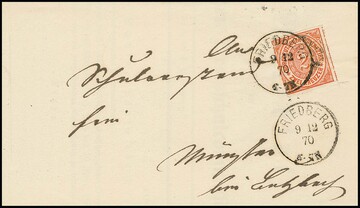 An
Schulvorstand
frei
Münster
bei Butzbach
FRIEDBERG
9 12
70
6-7N
FRIEDBERG
9 12
70